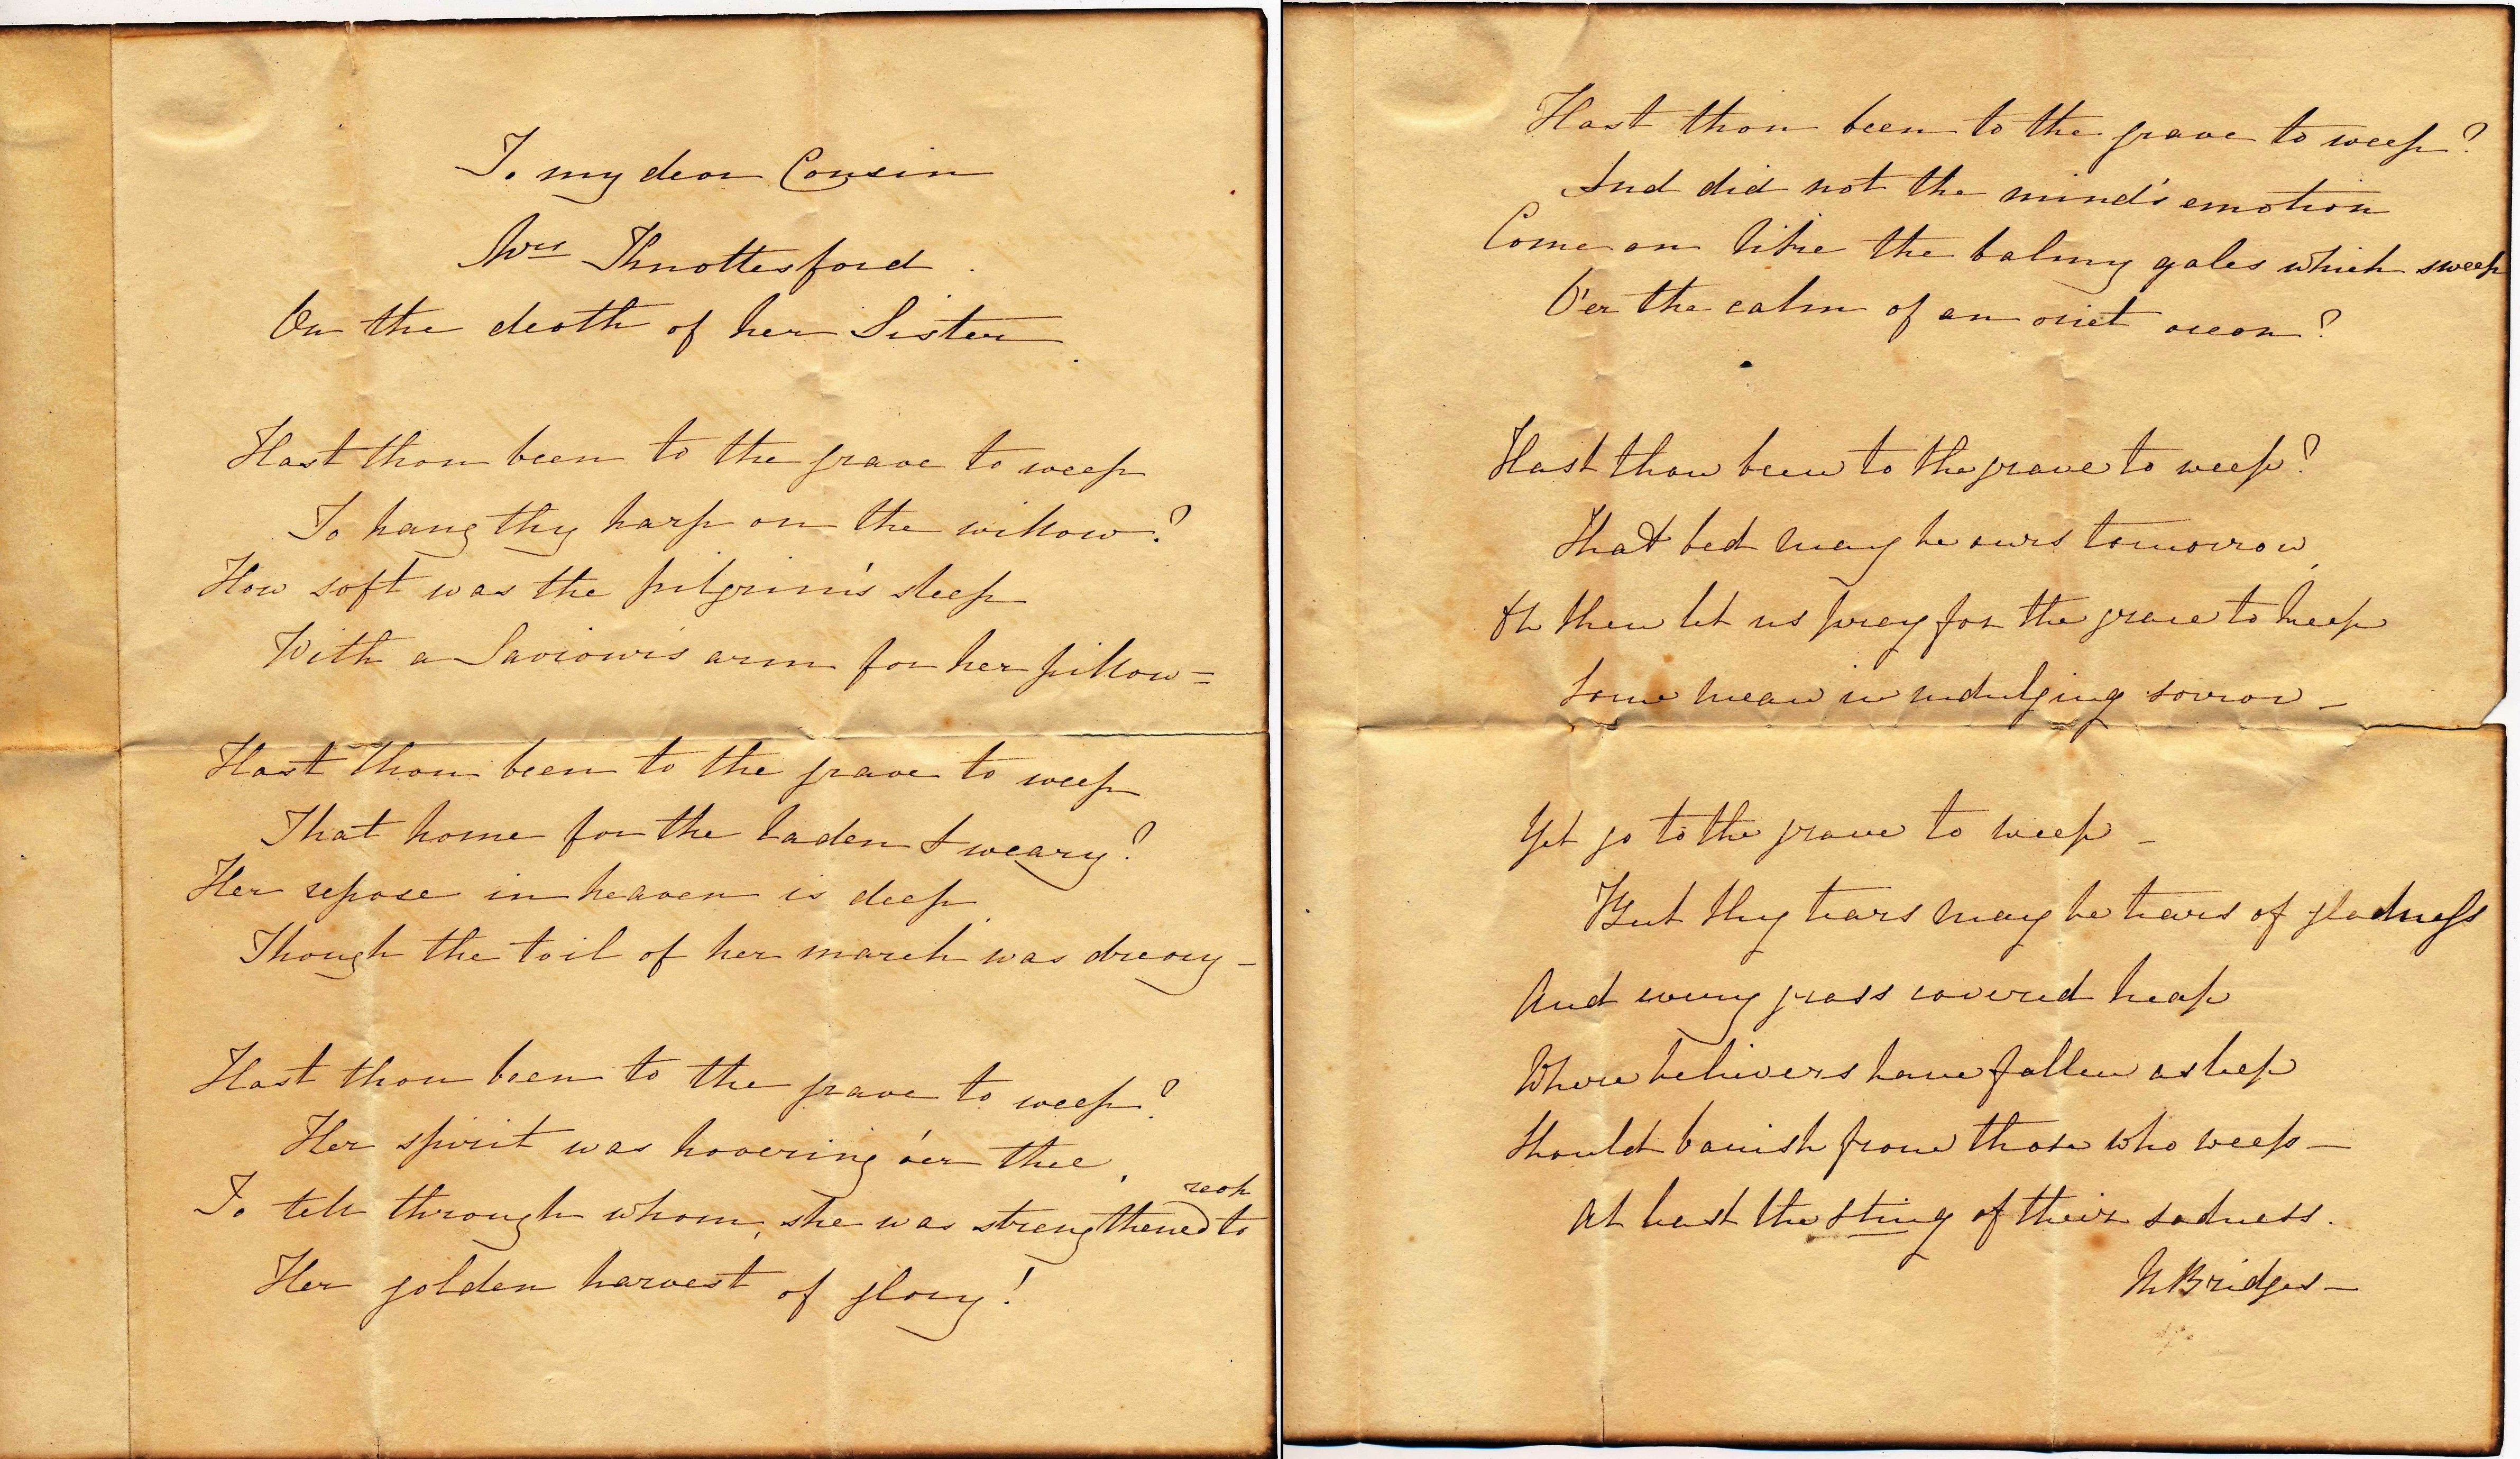 To my dear Cousin
Mrs Thnottesford.
On the death of her Sister
Hast thou been to the grave to weep
To hang thy harp on the willow?
How soft was the pilgrim's sleep
With a Saviour's arm for her pillow =
Hast thou been to the grave to weep
That home for the laden & weary?
Her repose in heaven is deep
Though the toil of her march was dreary -
Hast thou been to the grave to weep?
Her spirit was hovering o'er thee,
To tell through whom, she was strengthened to reap
Her golden harvest of glory!
Hast thou been to the grave to weep?
And did not the mind's emotion
Come on like the balmy gales which sweep
O'er the calm of an ocean?
Hast thou been to the grave to weep?
That bed may be ours tomorrow,
Oh then let us pray for the grace to keep
Some mean in indulging sorrow -
Yet go to the grave to weep -
But thy tears may be tears of gladness
And every grass covered heap
Where believers have fallen asleep
Should banish from those who weep -
At least the sting of their sadness.
M Bridges -